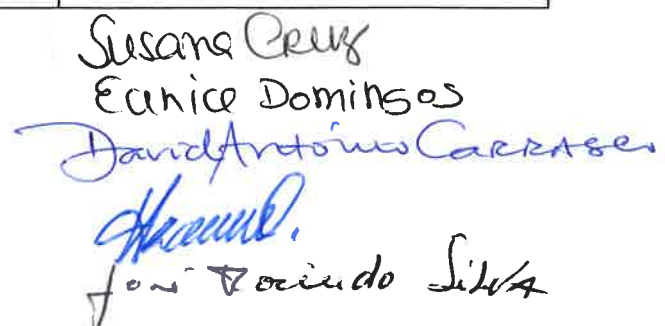 Susana Cruz
Eunice Domingos
David António Carrasco
José Silva